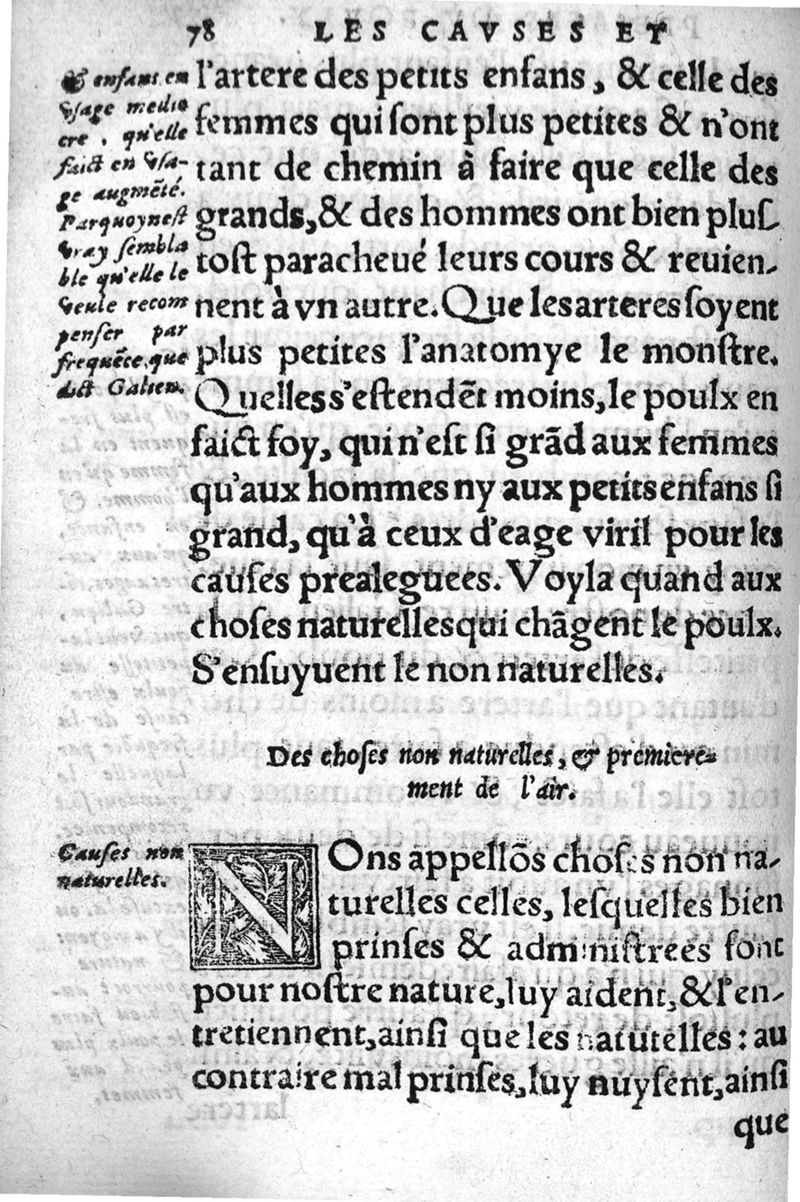 78 LES CAVSES ET
& enfans en
vsage medio
cre, qu'elle
faict en vsa-
ge augmẽté.
Parquoy n'est
vray sembla
ble qu'elle le
veule recom
penser par
frequẽce, que
dict Galien.
l'artere des petits enfans, & celle des
femmes qui ſont plus petites & n'ont
tant de chemin à faire que celle des
grands, & des hommes ont bien pluſ
toſt paracheué leurs cours & reuien-
nent à vn autre. Que les arteres ſoyent
plus petites l'anatomye le monſtre.
Quelles s'eſtendẽt moins, le poulx en
faict foy, qui n'eſt ſi grãd aux femmes
qu'aux hommes ny aux petits enfans ſi
grand, qu'à ceux d'eage viril pour les
cauſes prealeguees. Voyla quand aux
choſes naturelles qui chãgent le poulx.
S'enſuyuent le non naturelles.
Des choſes non naturelles, & premiere-
ment de l'air.
Cauſes non
naturelles.
NOns appellõs choſes non na-
turelles celles, leſquelles bien
prinſes & adminiſtrees ſont
pour noſtre nature, luy aident, & l'en-
tretiennent, ainſi que les natutelles: au
contraire mal prinſes, luy nuyſent, ainſi
que